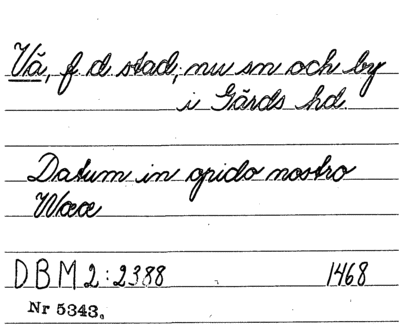 Vä, f d stad, nu sn och by
i Gärds hd
Datum in opido nostro
Wææ
DBM 2:2388 1468
Nr 5343.